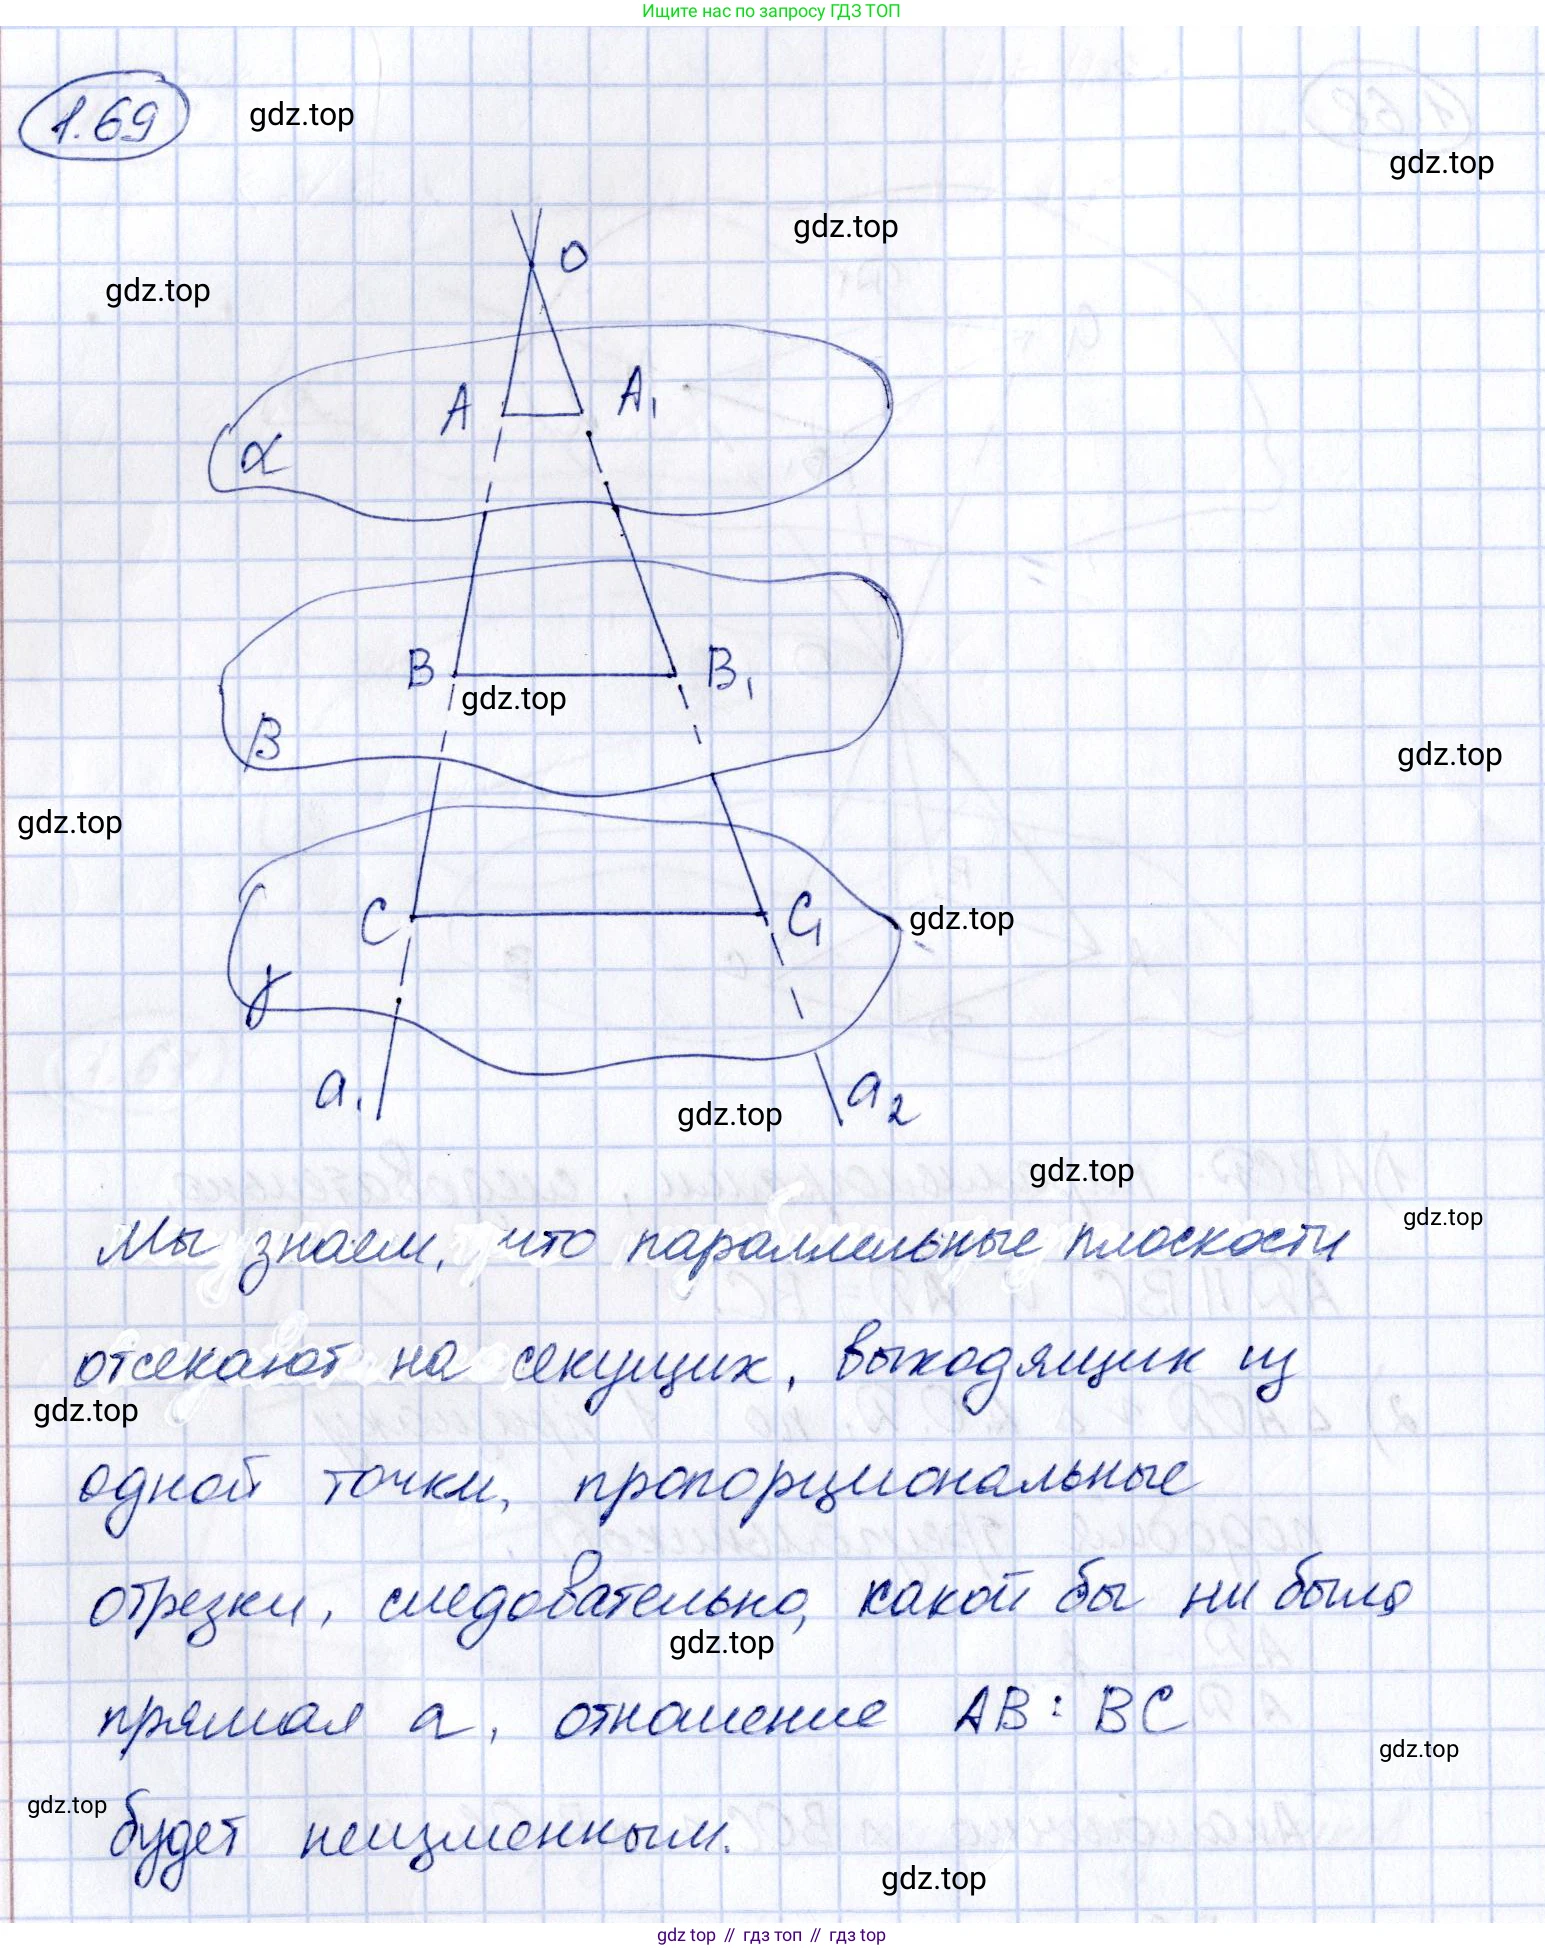 Ищите нас по запросу ГДЗ ТОП
1.69
gdz.top
gdz.top
gdz.top
O
gdz.top
A
A₁
α
B
B₁
gdz.top
β
gdz.top
gdz.top
C
C₁
gdz.top
γ
a₁
a₂
gdz.top
gdz.top
gdz.top
Мы знаем, что параллельные плоскости
отсекают на секущих, выходящих из
gdz.top
одной точки, пропорциональные
отрезки, следовательно, какой бы ни была
gdz.top
прямая a, отношение AB : BC
gdz.top
gdz.top
будет неизменным.
gdz.top
gdz top // гдз топ // гдз top